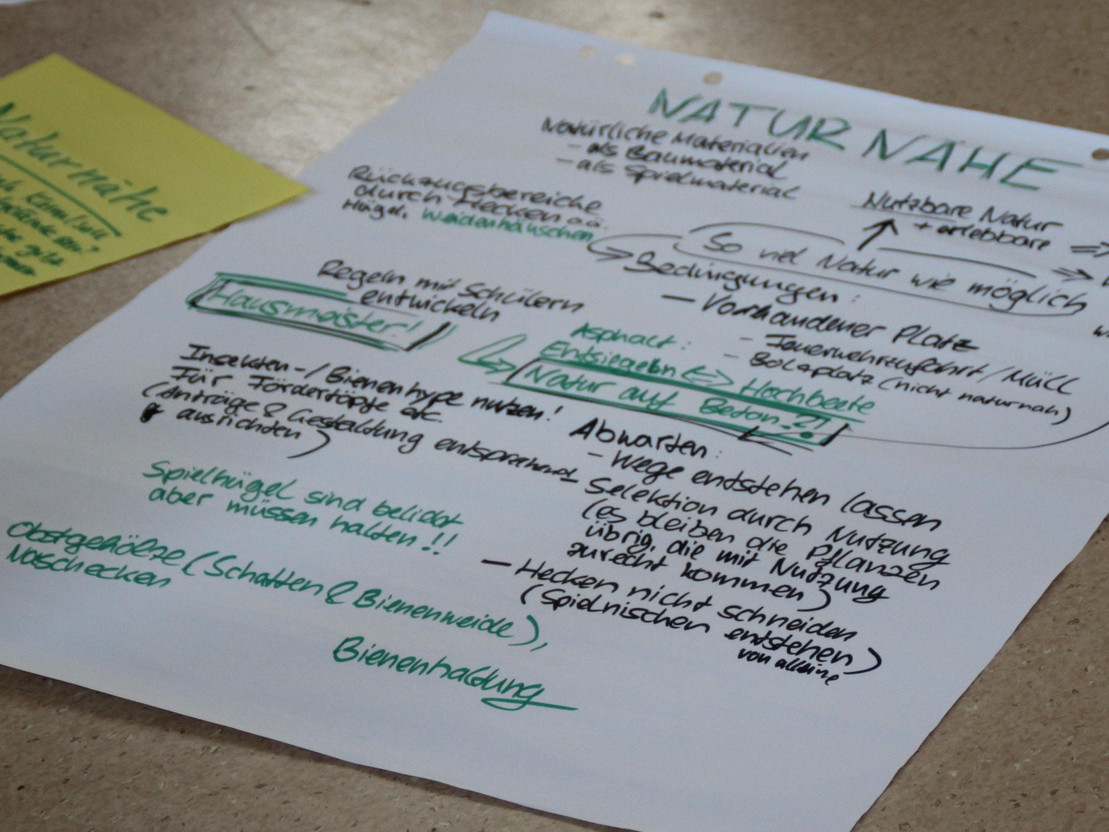 NATURNÄHE
Natürliche Materialien
- als Baumaterial
- als Spielmaterial
Rückzugsbereiche
durch Hecken o.ä.
Hügel, Weidenhäuschen
Nutzbare Natur
+ erlebbare
So viel Natur wie möglich
Bedingungen:
- Vorhandener Platz
- Feuerwehrzufahrt/Müll
- Bolzplatz (nicht naturnah)
Regeln mit Schülern
entwickeln
Hausmeister!
Asphalt:
Entsiegeln ⇔ Hochbeete
Natur auf Beton?!
Insekten-/Bienenhype nutzen!
Für Fördertöpfe etc.
(Anträge & Gestaltung entsprechend
ausrichten)
Abwarten:
- Wege entstehen lassen
- Selektion durch Nutzung
(es bleiben die Pflanzen
übrig, die mit Nutzung
zurecht kommen)
- Hecken nicht schneiden
(Spielnischen entstehen)
von alleine
Spielhügel sind beliebt
aber müssen halten!!
Obstgehölze (Schatten & Bienenweide),
Naschecken
Bienenhaltung
Naturnähe